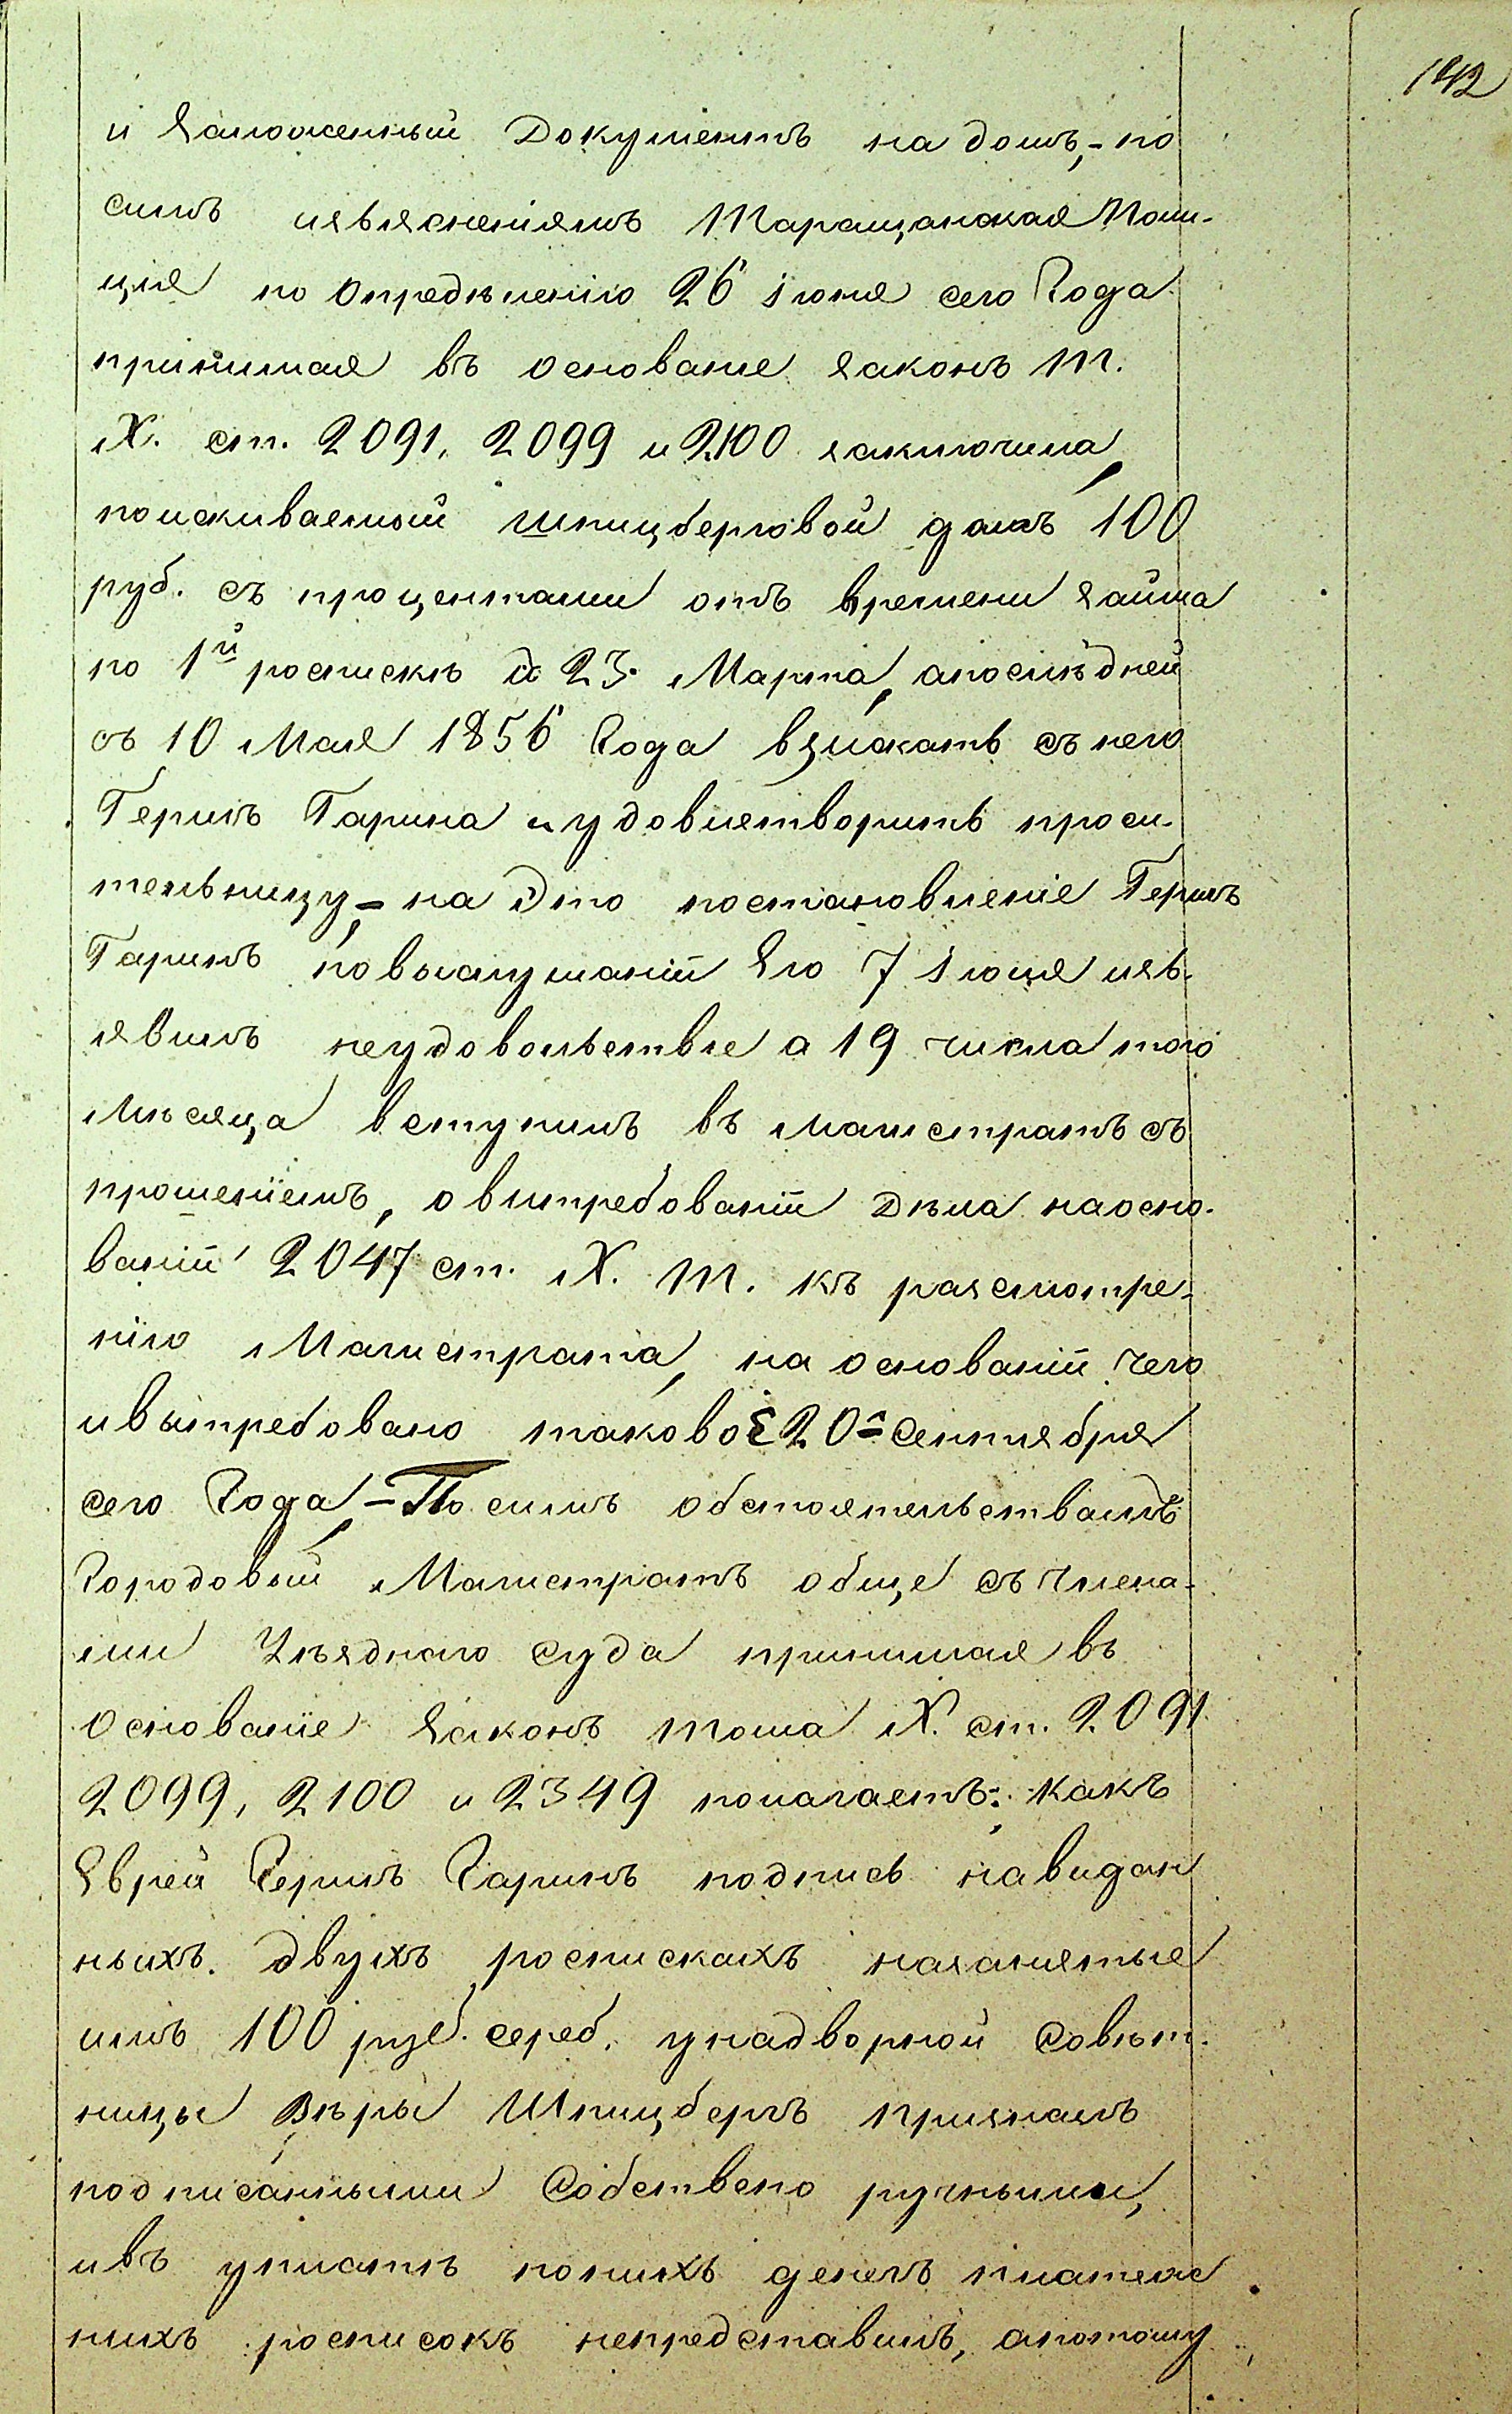 142
и заложенный документъ на домъ,- по
симъ изъясненіямъ Таращанская Поли-
ція по опредѣленію 26 іюня сего Года
принимая въ основаніе законъ т.
X. ст. 2091, 2099 и 2100 заключила,
поискиваемый Шпицберговой долгъ 100
руб. съ процентами отъ времени займа
по 1й роспискѣ съ 23. Марта, апослѣдней
съ 10 Мая 1856 Года взискать съ него
Гершъ Гарина и удовлетворить проси-
тельницу,- на Это постановленіе Гершъ
Гаринъ повыслушаніи Его 7 Іюля изъ-
явилъ неудовольствіе а 19 числа того
Мѣсяца вступилъ въ Магистратъ съ
прошеніемъ, о вытребованіи дѣла наосно-
ваніи 2047 ст. X. т. къ разсмотре-
нію Магистрата, на основаніи чего
ивытребовано таковоЕ 20- Сентября
сего Года,- По симъ обстоятельствамъ
Городовый Магистратъ обще съ члена-
ми Уѣзднаго Суда принимая въ
Основаніе законъ тома X. ст. 2091
2099, 2100 и 2349 полагаетъ: какъ
Еврей Гершъ Гаринъ подпись навидан
ныхъ двухъ роспискахъ назанятые
имъ 100 руб. сереб. унадворной Совѣт-
ницы Вѣры Шпицбергъ призналъ
подписанными Собствено ручными,
ивъ уплатѣ понихъ денегъ платеж
нихъ росписокъ непредставилъ, апотому